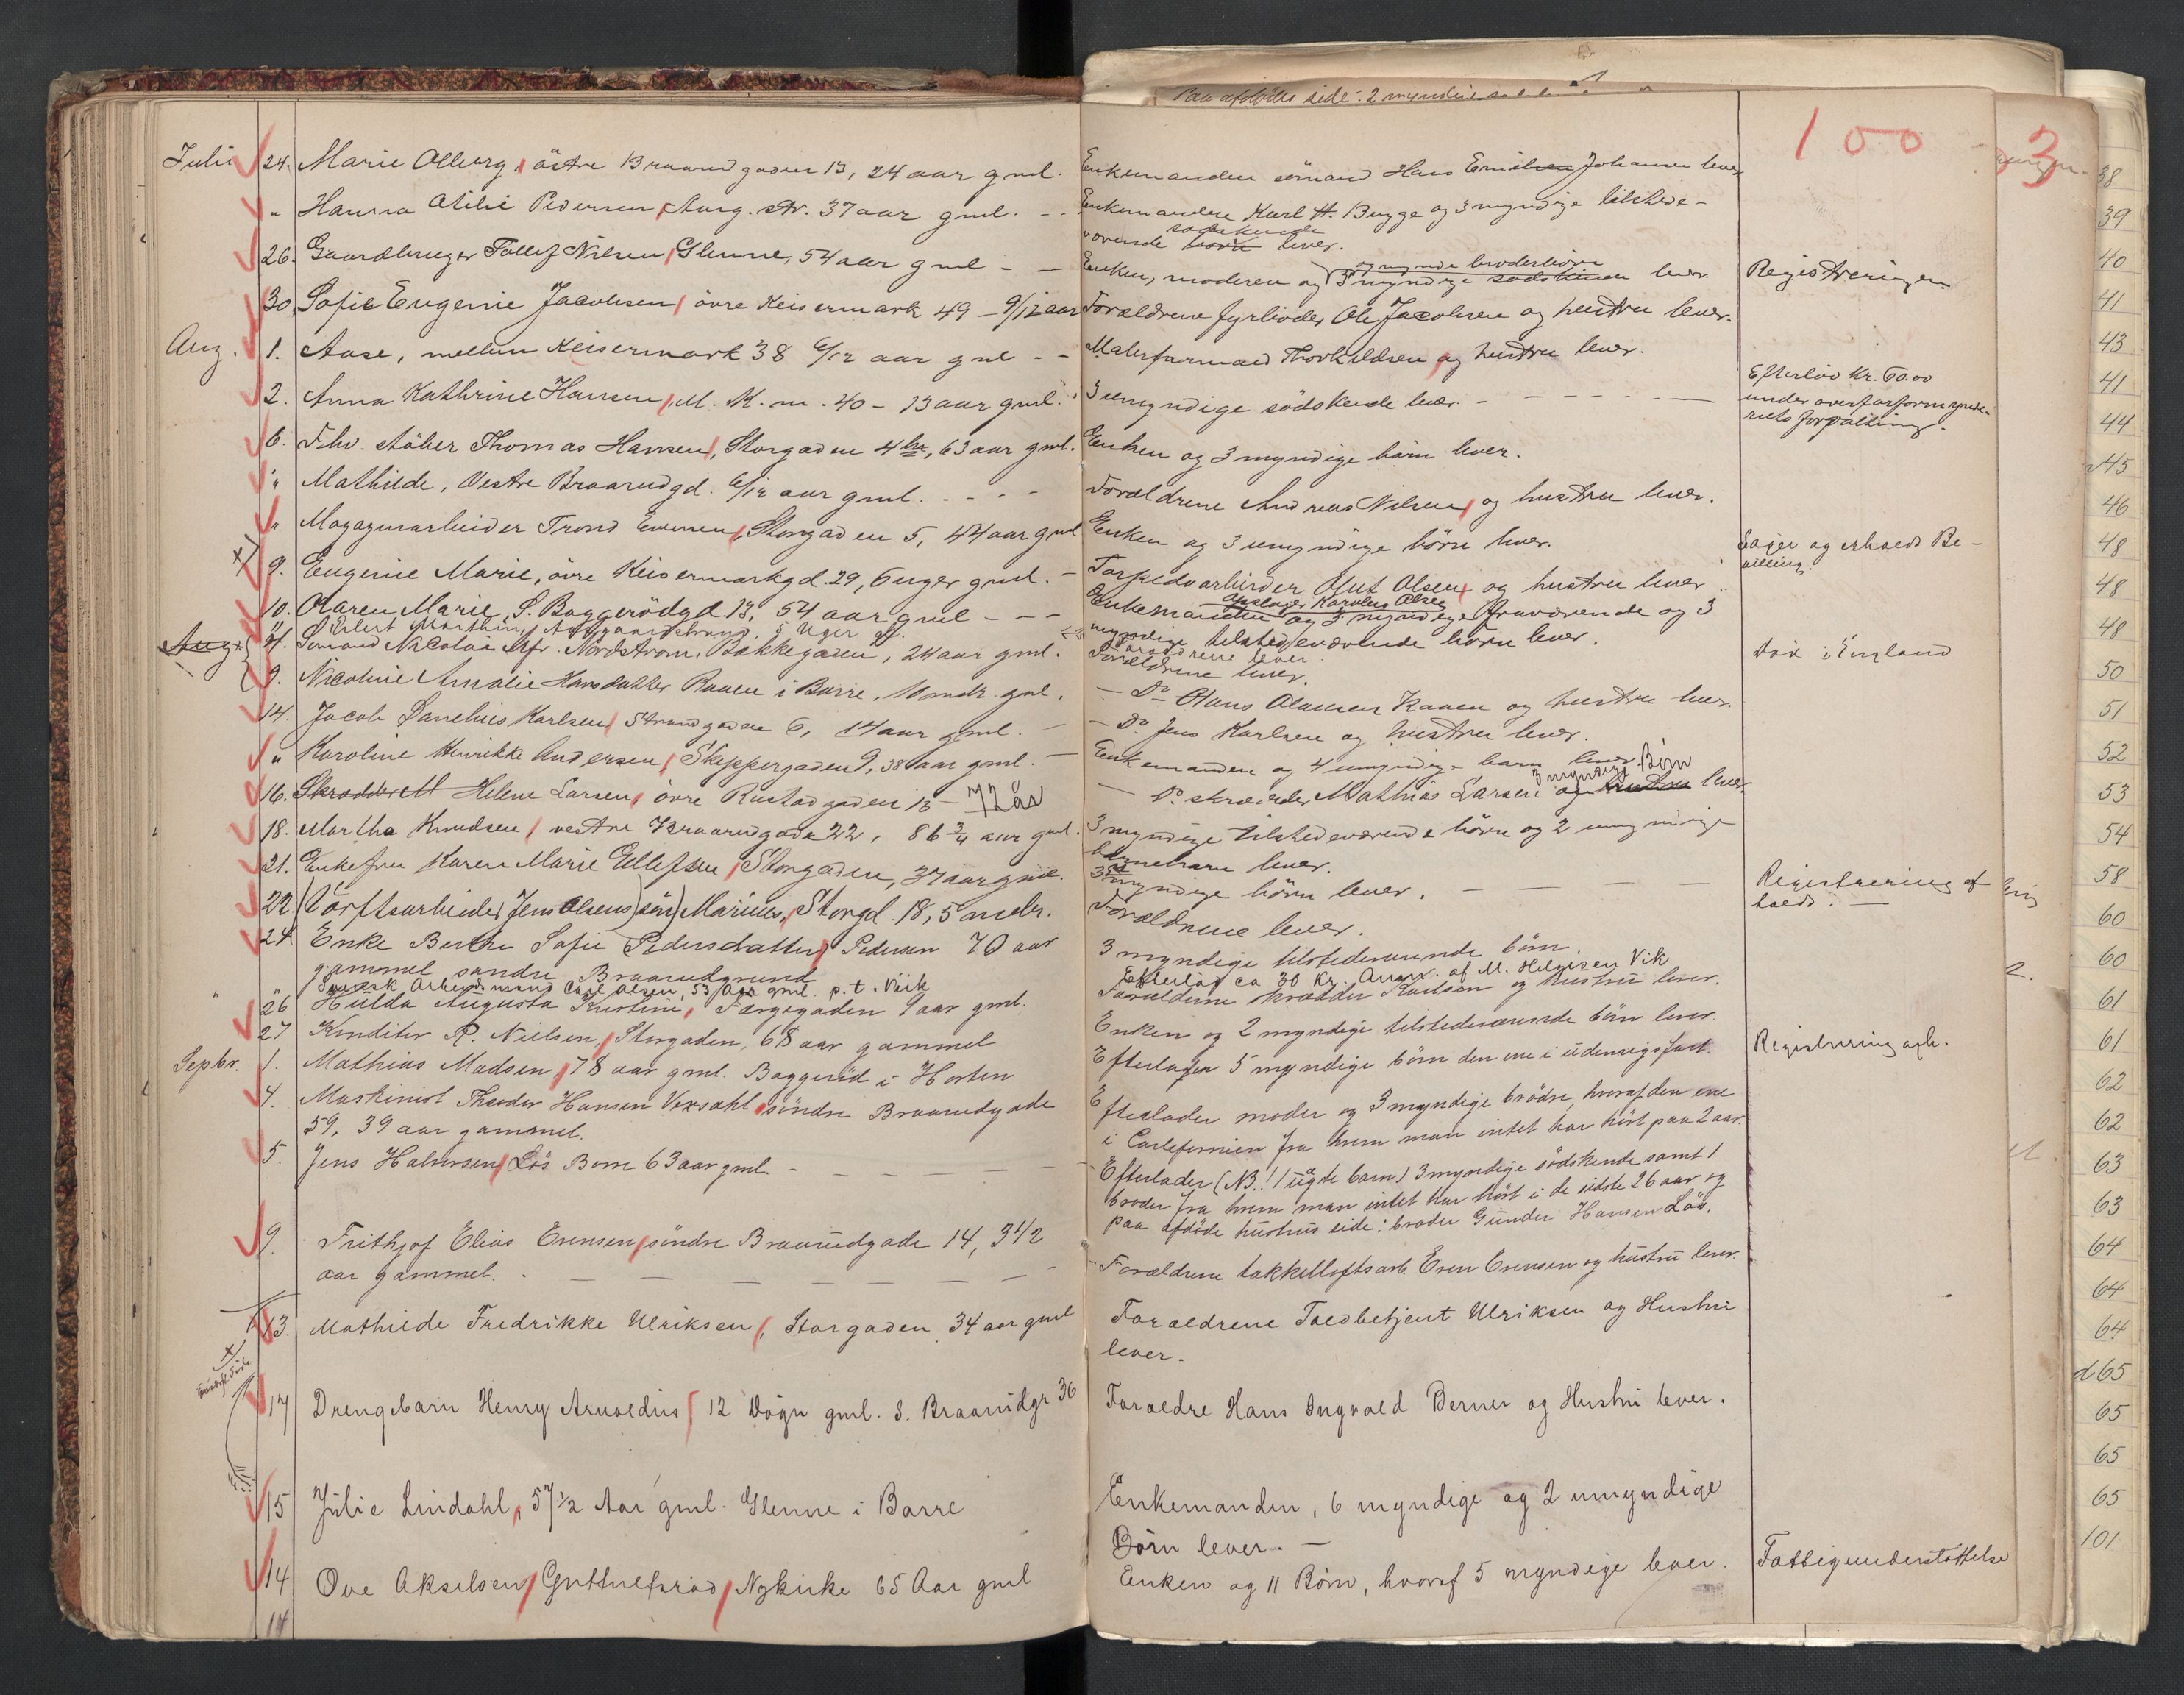 Paa afdødes side: 2 myndige
100
3
Juli 24. Marie Olberg, östre Braarudgaden 13, 24 aar gml.
Enkemanden sömand Hans Emilsen Johansen lever
" Hanna Otilie Pedersen, Aasg. str. 37 aar gml. - -
Enkemanden Karl H. Bugge og 3 myndige tilstede-
södskende
værende børn lever.
26. Gaardbruger Tollef Nilsen, Glenne, 54 aar gml - -
og mynde broderbörn
Enken, moderen og 3 myndige södskende lever
Registreringen
30. Sofie Eugenie Jacobsen, övre Keisermark 49 - 9/12 aar
Forældrene fyrböder Ole Jacobsen og hustru lever.
Aug. 1. Aase, mellem Keisermark 38 6/12 aar gml - -
Malerformand Thorkildsen og hustru lever.
2. Anna Kathrine Hansen, M. K. m. 40 - 13 aar gml.
3 umyndige södskende lever - - - - -
Efterlod Kr. 60.00
under overformynde-
riets forvaltning.
6. Fhv. stöber Thomas Hansen, Storgaden 4 b, 63 aar gml.
Enken og 3 myndige börn lever.
" Mathilde, Vestre Braarudgd. 6/12 aar gml. - - - -
Forældrene Andreas Nilsen og hustru lever.
" Magazinarbeider Trond Evensen, Storgaden 5, 44 aar gml
Enken og 3 umyndige börn lever.
Søger og erholdt Be-
villing.
9. Eugenie Marie, övre Keisermarkgd. 29, 6 uger gml. -
Torpedoarbeider Olut Olsen og hustru lever
10. Karen Marie, S. Baggerödgd 13, 54 aar gml - - -
Enkemanden og 3 myndige fraværende og 3
myndige tilstedeværende börn lever.
11. Eilert Marthin, Aasgaardstrand, 5 Uger gl.
Opslager Karolus Olsen
Forældrene lever
Aug. 4. Sømand Nicolai Alfr. Nordstrøm, Bakkegaden, 24 aar gml.
Forældrene lever.
Död i England
9. Nicoline Amalie Hansdatter Raaen i Borre, 10 mdr. gml.
- Do Hans Olausen Raaen og hustru lever.
14. Jacob Danelius Karlsen, Strandgaden 6, 14 aar gml. -
- Do. Jens Karlsen og hustru lever.
" Karoline Henrikke Andersen, Skippergaden 9, 38 aar gml. -
Enkemanden og 4 umyndige barn lever.
16. Skrædder M Helene Larsen, övre Rustadgaden 13 - 72 aar
3 myndige Børn
- Do. skrædder Mathias Larsen og hustru lever.
18. Martha Knudsen, vestre Braarudgade 22, 86 3/4 aar gml.
3 myndige tilstedeværende börn og 2 umyndige
börnebarn lever.
21. Enkefru Karen Marie Ellefsen, Storgaden, 37 aar gml.
3 umyndige börn lever. - - - -
Registrering af-
holdt. -
22. (Værftsarbeider Jens Olsens sön) Marius, Storgd. 18, 5 mdr.
Forældrene lever.
24 Enke Berthe Sofie Pedersdatter, Pedersen 70 aar
gammel søndre Braarudgrund
3 myndige tilstedeværende börn.
" Svensk Arbeidsmand Carl Olsen, 53 Aar gml. p. t. Viik
Efterlod ca 30 Kr. Anm. af M. Helgisen Vik
26 Hulda Augusta Kristine, Færgegaden 1 aar gml.
Forældrene skrædder Karlsen og hustru lever.
27 Konditor P. Nielsen, Storgaden, 68 aar gammel
Enken og 2 myndige tilstedeværende börn lever.
Registrering afh.
Sepbr. 1. Mathias Madsen, 78 aar gml. Baggeröd i Horten
Efterlader 5 myndige börn den ene i udenrigsfart.
4. Maskinist Theodor Hansen Voxdahl, söndre Braarudgade
59, 39 aar gammel.
Efterlader moder og 3 myndige brödre, hvoraf den ene
i Carlefornien fra hvem man intet har hört paa 2 aar.
5. Jens Halvorsen, Lös Borre 63 aar gml. - - - -
Efterlader (NB.! 1 uægte barn) 3 myndige södskende samt 1
broder fra hvem man intet har hört i de sidste 26 aar og
paa afdöde hustrus side: broder Gunder Hansen Lös.
9. Frithjof Elias Evensen, söndre Braarudgade 14, 3 1/2
aar gammel. - - - - - - -
- Forældrene takkelloftsarb. Even Evensen og hustru lever.
13. Mathilde Fredrikke Ulriksen, Storgaden 34 aar gml
Forældrene Toldbetjent Ulriksen og Hustru
lever.
17 Drengebarn Henry Arnoldus, 12 Døgn gml. S. Braarudgr 36
Forældre Hans Ingvald Berner og Hustru lever.
15 Julie Lindahl, 57 1/2 Aar gml. Glenne i Borre
Enkemanden, 6 myndige og 2 umyndige
Börn lever. -
14 Ove Akselsen, Guttulfsrød, Nykirke 65 Aar gml
Enken og 11 Børn, hvoraf 5 myndige lever.
Fattigunderstøttelse
14
38
39
40
41
43
41
44
45
46
48
48
48
50
51
52
53
54
58
60
60
61
61
62
62
63
63
64
64
64
65
65
65
65
101